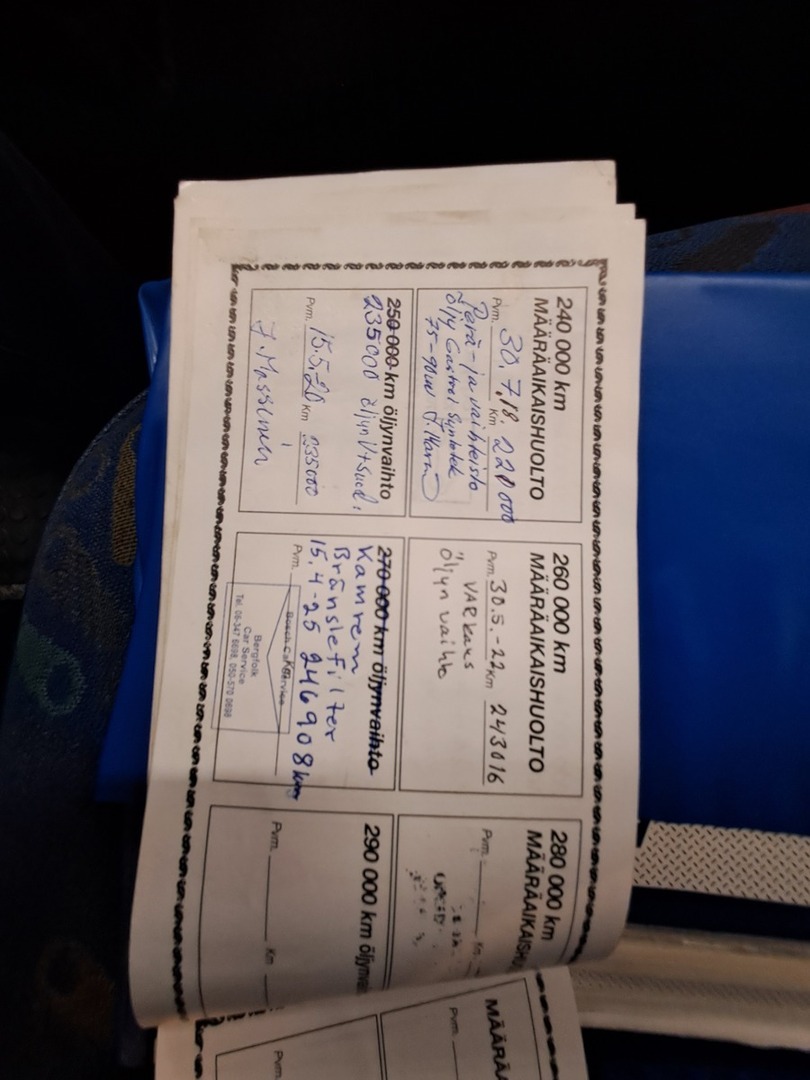 240 000 km
MÄÄRÄAIKAISHUOLTO
Pvm. 30.7.18. Km 220 000
Perä-ja vaihteisto
öljy Castrol Syntolek
75-90w
250 000 km öljynvaihto
235000 öljynV+Suod.
Pvm. 15.5.20 Km 235000
260 000 km
MÄÄRÄAIKAISHUOLTO
Pvm. 30.5.-22 Km 243016
VARkaus
Öljyn vaihto
270 000 km öljynvaihto
Kamrem
Bränslefilter
15.4-25 246908 km
Pvm. Km
Bosch Car Service
Bergfolk
Car Service
Tel. 06-347 6698, 050-570 0698
280 000 km
MÄÄRÄAIKAISHU
Pvm. Km
290 000 km öljynvai
Pvm. Km
MÄÄRÄA
Pvm.
Pvm.